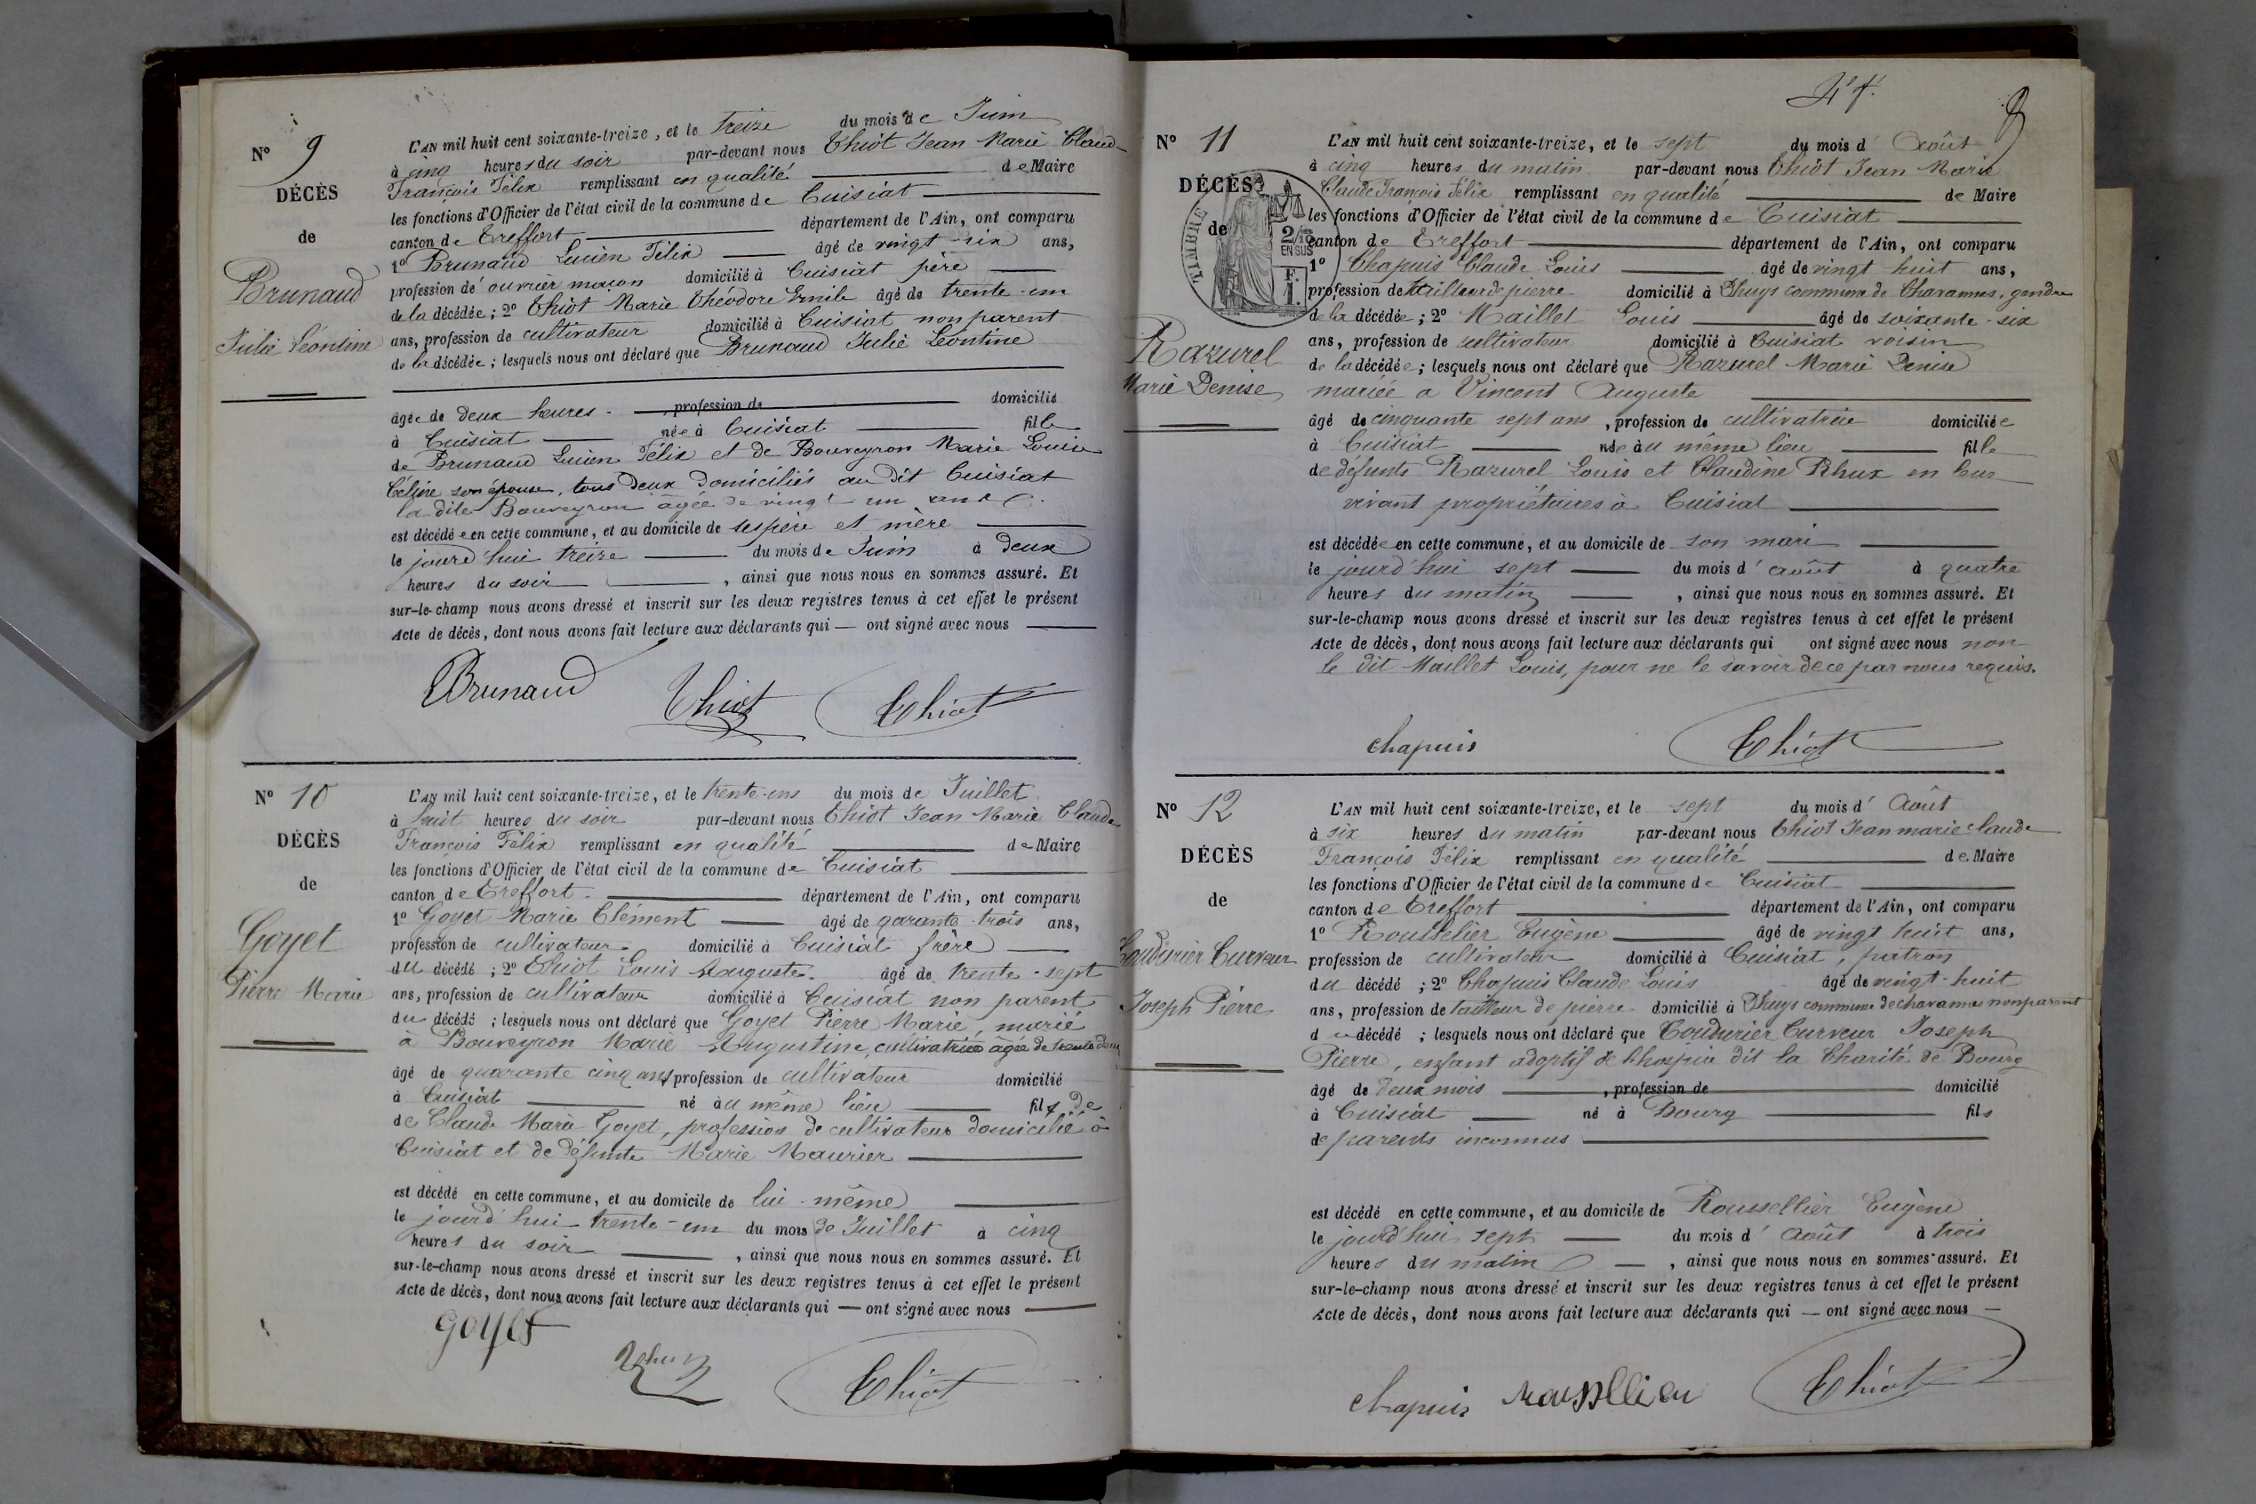 N° 9
DÉCÈS
de
Brunaud
Julie Léontine
L'AN mil huit cent soixante-treize, et le treize du mois de Juin
à cinq heures du soir par-devant nous Thiot Jean Marie Claude
François Félix remplissant en qualité de Maire
les fonctions d'Officier de l'état civil de la commune de Cuisiat
canton de Treffort département de l'Ain, ont comparu
1° Brunaud Lucien Félix âgé de vingt-six ans,
profession de ouvrier maçon domicilié à Cuisiat père
de la décédée; 2° Thiot Marie Théodore Emile âgé de trente-un
ans, profession de cultivateur domicilié à Cuisiat non parent
de la décédée; lesquels nous ont déclaré que Brunaud Julie Léontine
âgée de deux heures profession de domicilié
à Cuisiat née à Cuisiat fille
de Brunaud Lucien Félix et de Bouveyron Marie Louise
Céline son épouse, tous deux domiciliés au dit Cuisiat
la dite Bouveyron âgée de vingt-un ans
est décédée en cette commune, et au domicile de ses père et mère
le jourd'hui treize du mois de Juin à deux
heures du soir, ainsi que nous nous en sommes assuré. Et
sur-le-champ nous avons dressé et inscrit sur les deux registres tenus à cet effet le présent
Acte de décès, dont nous avons fait lecture aux déclarants qui — ont signé avec nous
Brunaud Thiot Thiot
N° 10
DÉCÈS
de
Goyet
Pierre Marie
L'AN mil huit cent soixante-treize, et le trente-un du mois de Juillet
à huit heures du soir par-devant nous Thiot Jean Marie Claude
François Félix remplissant en qualité de Maire
les fonctions d'Officier de l'état civil de la commune de Cuisiat
canton de Treffort département de l'Ain, ont comparu
1° Goyet Marie Clément âgé de quarante-trois ans,
profession de cultivateur domicilié à Cuisiat frère
du décédé; 2° Thiot Louis Auguste âgé de trente-sept
ans, profession de cultivateur domicilié à Cuisiat non parent
du décédé; lesquels nous ont déclaré que Goyet Pierre Marie, marié
à Bouveyron Marie Augustine, cultivatrice âgée de trente deux
âgé de quarante cinq ans, profession de cultivateur domicilié
à Cuisiat né au même lieu fils de
de Claude Marie Goyet, profession de cultivateur domicilié à
Cuisiat et de défunte Marie Maurier
est décédé en cette commune, et au domicile de lui-même
le jourd'hui trente-un du mois de Juillet à cinq
heures du soir, ainsi que nous nous en sommes assuré. Et
sur-le-champ nous avons dressé et inscrit sur les deux registres tenus à cet effet le présent
Acte de décès, dont nous avons fait lecture aux déclarants qui — ont signé avec nous
goyet Thiot
N° 11
DÉCÈS
de
TIMBRE
2/10
EN SUS
F.
1.
Razurel
Marie Denise
L'AN mil huit cent soixante-treize, et le sept du mois d'Août
à cinq heures du matin par-devant nous Thiot Jean Marie
Claude François Félix remplissant en qualité de Maire
les fonctions d'Officier de l'état civil de la commune de Cuisiat
canton de Treffort département de l'Ain, ont comparu
1° Chapuis Claude Louis âgé de vingt huit ans,
profession de tailleur de pierre domicilié à Dhuys commune de Chavannes, gendre
de la décédée; 2° Maillet Louis âgé de soixante-six
ans, profession de cultivateur domicilié à Cuisiat voisin
de la décédée; lesquels nous ont déclaré que Razurel Marie Denise
mariée a Vincent Auguste
âgé de cinquante sept ans, profession de cultivatrice domiciliée
à Cuisiat née au même lieu fille
de défunts Razurel Louis et Claudine Rhux en leur
vivant propriétaires à Cuisiat
est décédée en cette commune, et au domicile de son mari
le jourd'hui sept du mois d'août à quatre
heures du matin, ainsi que nous nous en sommes assuré. Et
sur-le-champ nous avons dressé et inscrit sur les deux registres tenus à cet effet le présent
Acte de décès, dont nous avons fait lecture aux déclarants qui ont signé avec nous non
le dit Maillet Louis, pour ne le savoir de ce par nous requis.
chapuis Thiot
N° 12
DÉCÈS
de
Coudurier Curveur
Joseph Pierre
L'AN mil huit cent soixante-treize, et le sept du mois d'Août
à six heures du matin par-devant nous Thiot Jean marie claude
François Félix remplissant en qualité de Maire
les fonctions d'Officier de l'état civil de la commune de Cuisiat
canton de Treffort département de l'Ain, ont comparu
1° Rousselier Eugène âgé de vingt huit ans,
profession de cultivateur domicilié à Cuisiat, patron
du décédé; 2° Chapuis Claude Louis âgé de vingt-huit
ans, profession de tailleur de pierre domicilié à Dhuys commune de chavannes non parent
du décédé; lesquels nous ont déclaré que Coudurier Curveur Joseph
Pierre, enfant adoptif de l'hospice dit la Charité de Bourg
âgé de deux mois, profession de domicilié
à Cuisiat né à Bourg fils
de parents inconnus
est décédé en cette commune, et au domicile de Roussellier Eugène
le jourd'hui sept du mois d'août à trois
heures du matin, ainsi que nous nous en sommes assuré. Et
sur-le-champ nous avons dressé et inscrit sur les deux registres tenus à cet effet le présent
Acte de décès, dont nous avons fait lecture aux déclarants qui — ont signé avec nous —
chapuis Thiot